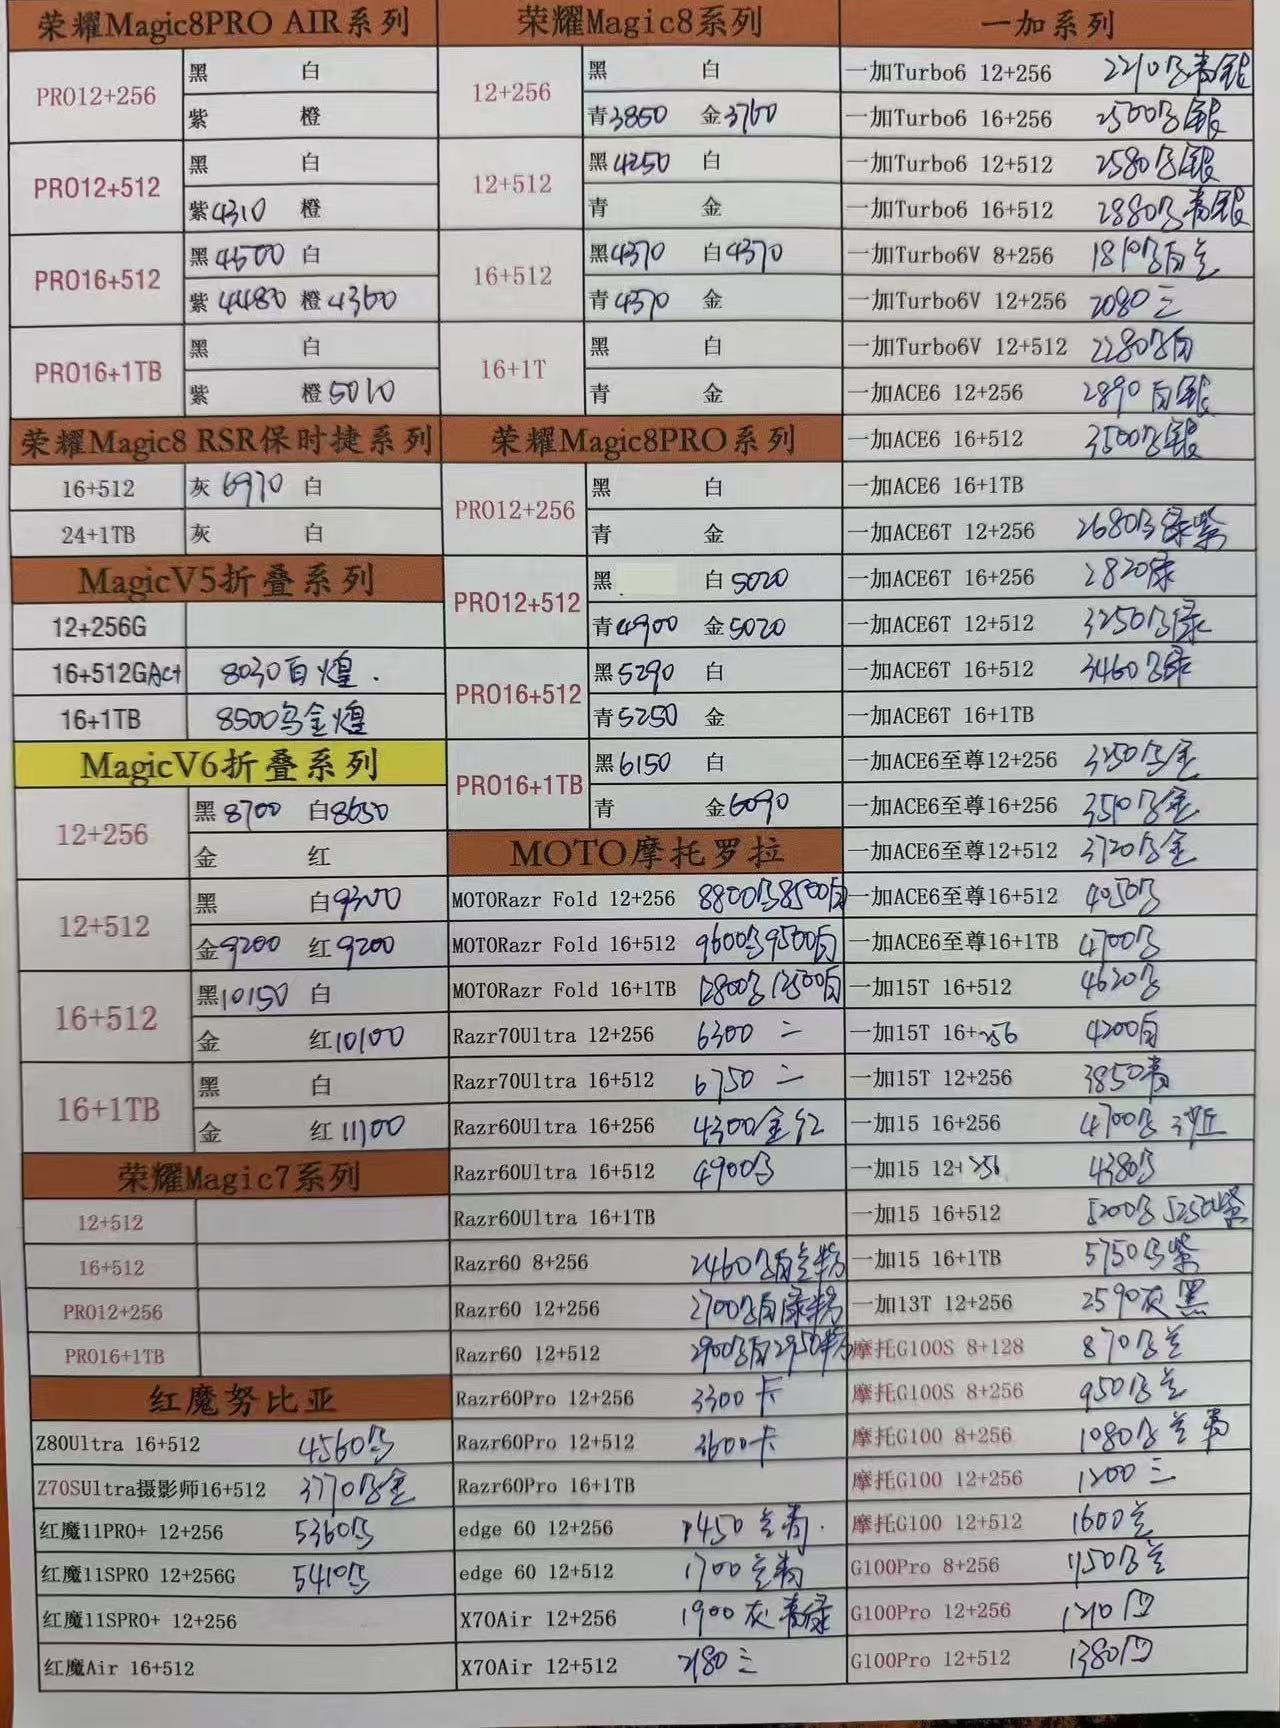 荣耀Magic8PRO AIR系列
PRO12+256
黑 白
紫 橙
PRO12+512
黑 白
紫4310 橙
PRO16+512
黑4500 白
紫4480 橙4360
PRO16+1TB
黑 白
紫 橙5010
荣耀Magic8 RSR保时捷系列
16+512 灰6970 白
24+1TB 灰 白
MagicV5折叠系列
12+256G
16+512GAct 8030白煌.
16+1TB 8500乌金煌
MagicV6折叠系列
12+256
黑8700 白8650
金 红
12+512
黑 白9300
金9200 红9200
16+512
黑10150 白
金 红10100
16+1TB
黑 白
金 红11100
荣耀Magic7系列
12+512
16+512
PRO12+256
PRO16+1TB
红魔努比亚
Z80Ultra 16+512 4560乌
Z70SUltra摄影师16+512 3770乌金
红魔11PRO+ 12+256 5360乌
红魔11SPRO 12+256G 5410乌
红魔11SPRO+ 12+256
红魔Air 16+512
荣耀Magic8系列
12+256
黑 白
青3850 金3760
12+512
黑4250 白
青 金
16+512
黑4370 白4370
青4370 金
16+1T
黑 白
青 金
荣耀Magic8PRO系列
PRO12+256
黑 白
青 金
PRO12+512
黑 白5020
青4900 金5020
PRO16+512
黑5290 白
青5250 金
PRO16+1TB
黑6150 白
青 金6090
MOTO摩托罗拉
MOTORazr Fold 12+256 8800乌8500白
MOTORazr Fold 16+512 9600乌9500白
MOTORazr Fold 16+1TB 乌 白
Razr70Ultra 12+256 6300 二
Razr70Ultra 16+512 6750 二
Razr60Ultra 16+256 4300金红
Razr60Ultra 16+512 4900乌
Razr60Ultra 16+1TB
Razr60 8+256 2460乌白兰粉
Razr60 12+256 2700乌白绿粉
Razr60 12+512 2900乌白2950粉
Razr60Pro 12+256 3300 卡
Razr60Pro 12+512 3600卡
Razr60Pro 16+1TB
edge 60 12+256 1450兰青.
edge 60 12+512 1700兰青
X70Air 12+256 1900灰青绿
X70Air 12+512 2180三
一加系列
一加Turbo6 12+256 2210乌青银
一加Turbo6 16+256 2500乌银
一加Turbo6 12+512 2580乌银
一加Turbo6 16+512 2880乌青银
一加Turbo6V 8+256 1810乌白兰
一加Turbo6V 12+256 2080三
一加Turbo6V 12+512 2280乌白
一加ACE6 12+256 2890白银
一加ACE6 16+512 3500乌银
一加ACE6 16+1TB
一加ACE6T 12+256 2680乌绿紫
一加ACE6T 16+256 2820绿
一加ACE6T 12+512 3250乌绿
一加ACE6T 16+512 3460乌绿
一加ACE6T 16+1TB
一加ACE6至尊12+256 乌金
一加ACE6至尊16+256 3510乌金
一加ACE6至尊12+512 3720乌金
一加ACE6至尊16+512 4050乌
一加ACE6至尊16+1TB 4700乌
一加15T 16+512 4620乌
一加15T 16+256 4200白
一加15T 12+256 3850青
一加15 16+256 4700乌
一加15 12+256 4380乌
一加15 16+512 5200乌 5250紫
一加15 16+1TB 5750乌紫
一加13T 12+256 2590灰黑
摩托G100S 8+128 870乌兰
摩托G100S 8+256 950乌兰
摩托G100 8+256 1080乌兰青
摩托G100 12+256 1200三
摩托G100 12+512 1600兰
G100Pro 8+256 1150乌兰
G100Pro 12+256 1210四
G100Pro 12+512 1380四